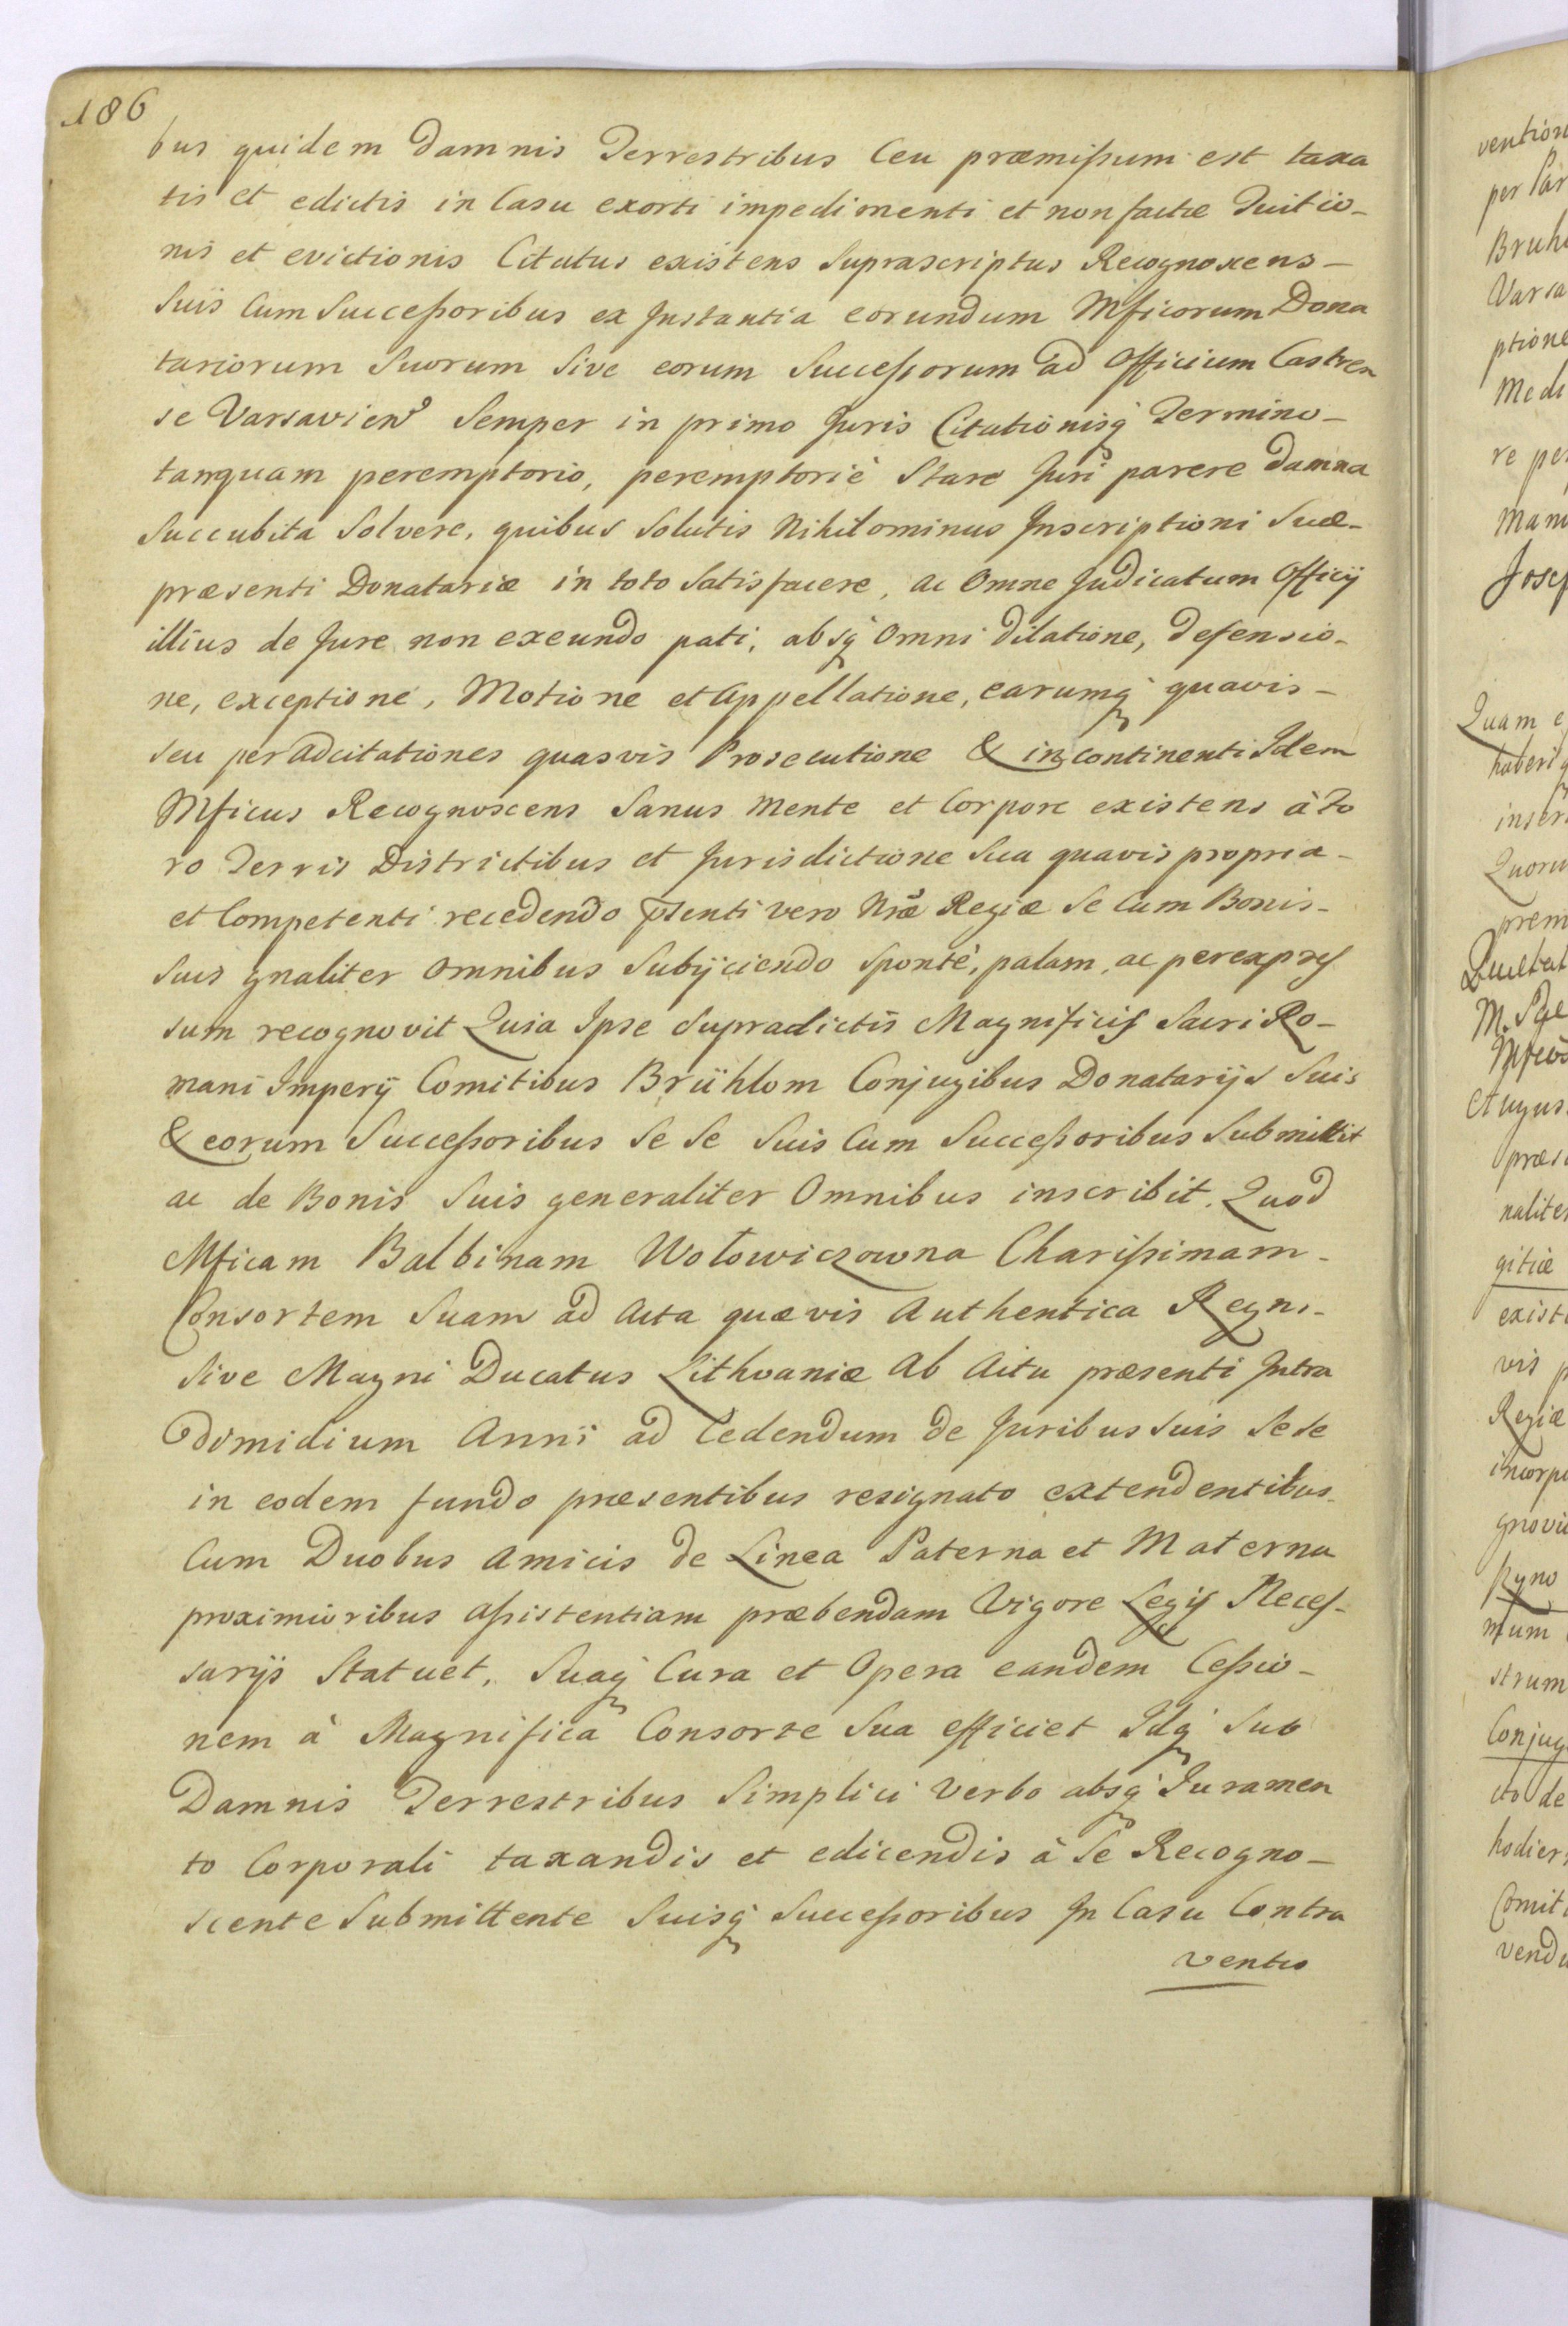 186
bus quidem damnis Terrestribus Ceu præmissum est taxa
tis et edictis in Casu exorti impedimenti et non factæ Tuitio-
nis et evictionis Citatus existens Suprascriptus Recognoscens-
Suis Cum Successoribus ex Instantia eorundum Mficorum Dona
tariorum Suorum Sive eorum Successorum ad Officium Castren
se Varsavien Semper in primo Juris Citationisq Termino-
tanquam peremptorio, peremptoriè Stare Juri parere damna
Succubita Solvere, quibus Solutis Nihilominus Inscriptioni Suæ-
præsenti Donatariæ in toto Satisfacere, ac Omne Judicatum Officÿ
illius de Jure non exeundo pati, absq Omni dilatione, defensio-
ne, exceptione, Motione et Appellatione, earumq quavis-
seu per adcitationes quasvis Prosecutione & incontinenti Idem
Mficus Recognoscens Sanus Mente et Corpore existens à Fo
ro Terris Districtibus et Jurisdictione Sua quavis propria-
et Competenti recedendo pñsenti vero Nræ Regiæ Se Cum Bonis-
Suis gnaliter Omnibus Subÿciendo Spontè, palam, ac per expres
sum recognovit Quia Ipse Supradictis Magnificis Sacri Ro-
mani Imperÿ Comitibus Brühlom Conjugibus Donatarÿs Suis
& eorum Successoribus Se Se Suis Cum Successoribus Submittit
ac de Bonis Suis generaliter Omnibus inscribit. Quod
Mficam Balbinam Wołowiczowna Charissimam-
Consortem Suam ad Acta quævis Authentica Regni-
Sive Magni Ducatus Lithvaniæ Ab Actu præsenti Intra
Dimidium Anni ad Cedendum de Juribus Suis Se Se
in eodem fundo præsentibus resignato extendentibus-
Cum Duobus Amicis de Linea Paterna et Materna
proximioribus assistentiam præbendam Vigore Legis Neces-
sarÿs Statuet, Suaq Cura et Opera eandem Cessio-
nem à Magnifica Consorte Sua efficiet Idq Sub
Damnis Terrestribus Simplici Verbo absq Juramen
to Corporali taxandis et edicendis à Se Recogno-
scente Submittente Suisq Successoribus In Casu Contra
ventio
vention
per Par
Bruh
Varsa
ptione
Medi
re per
Mam
Josep
Quam e
haberi
inser
Quoru
prem
M.
Augus
præs
nalite
gitiæ
existe
vis p
Regiæ
incorpo
gnovi
mum
strum
Conjug
cto de
hodier
Comit
vendi